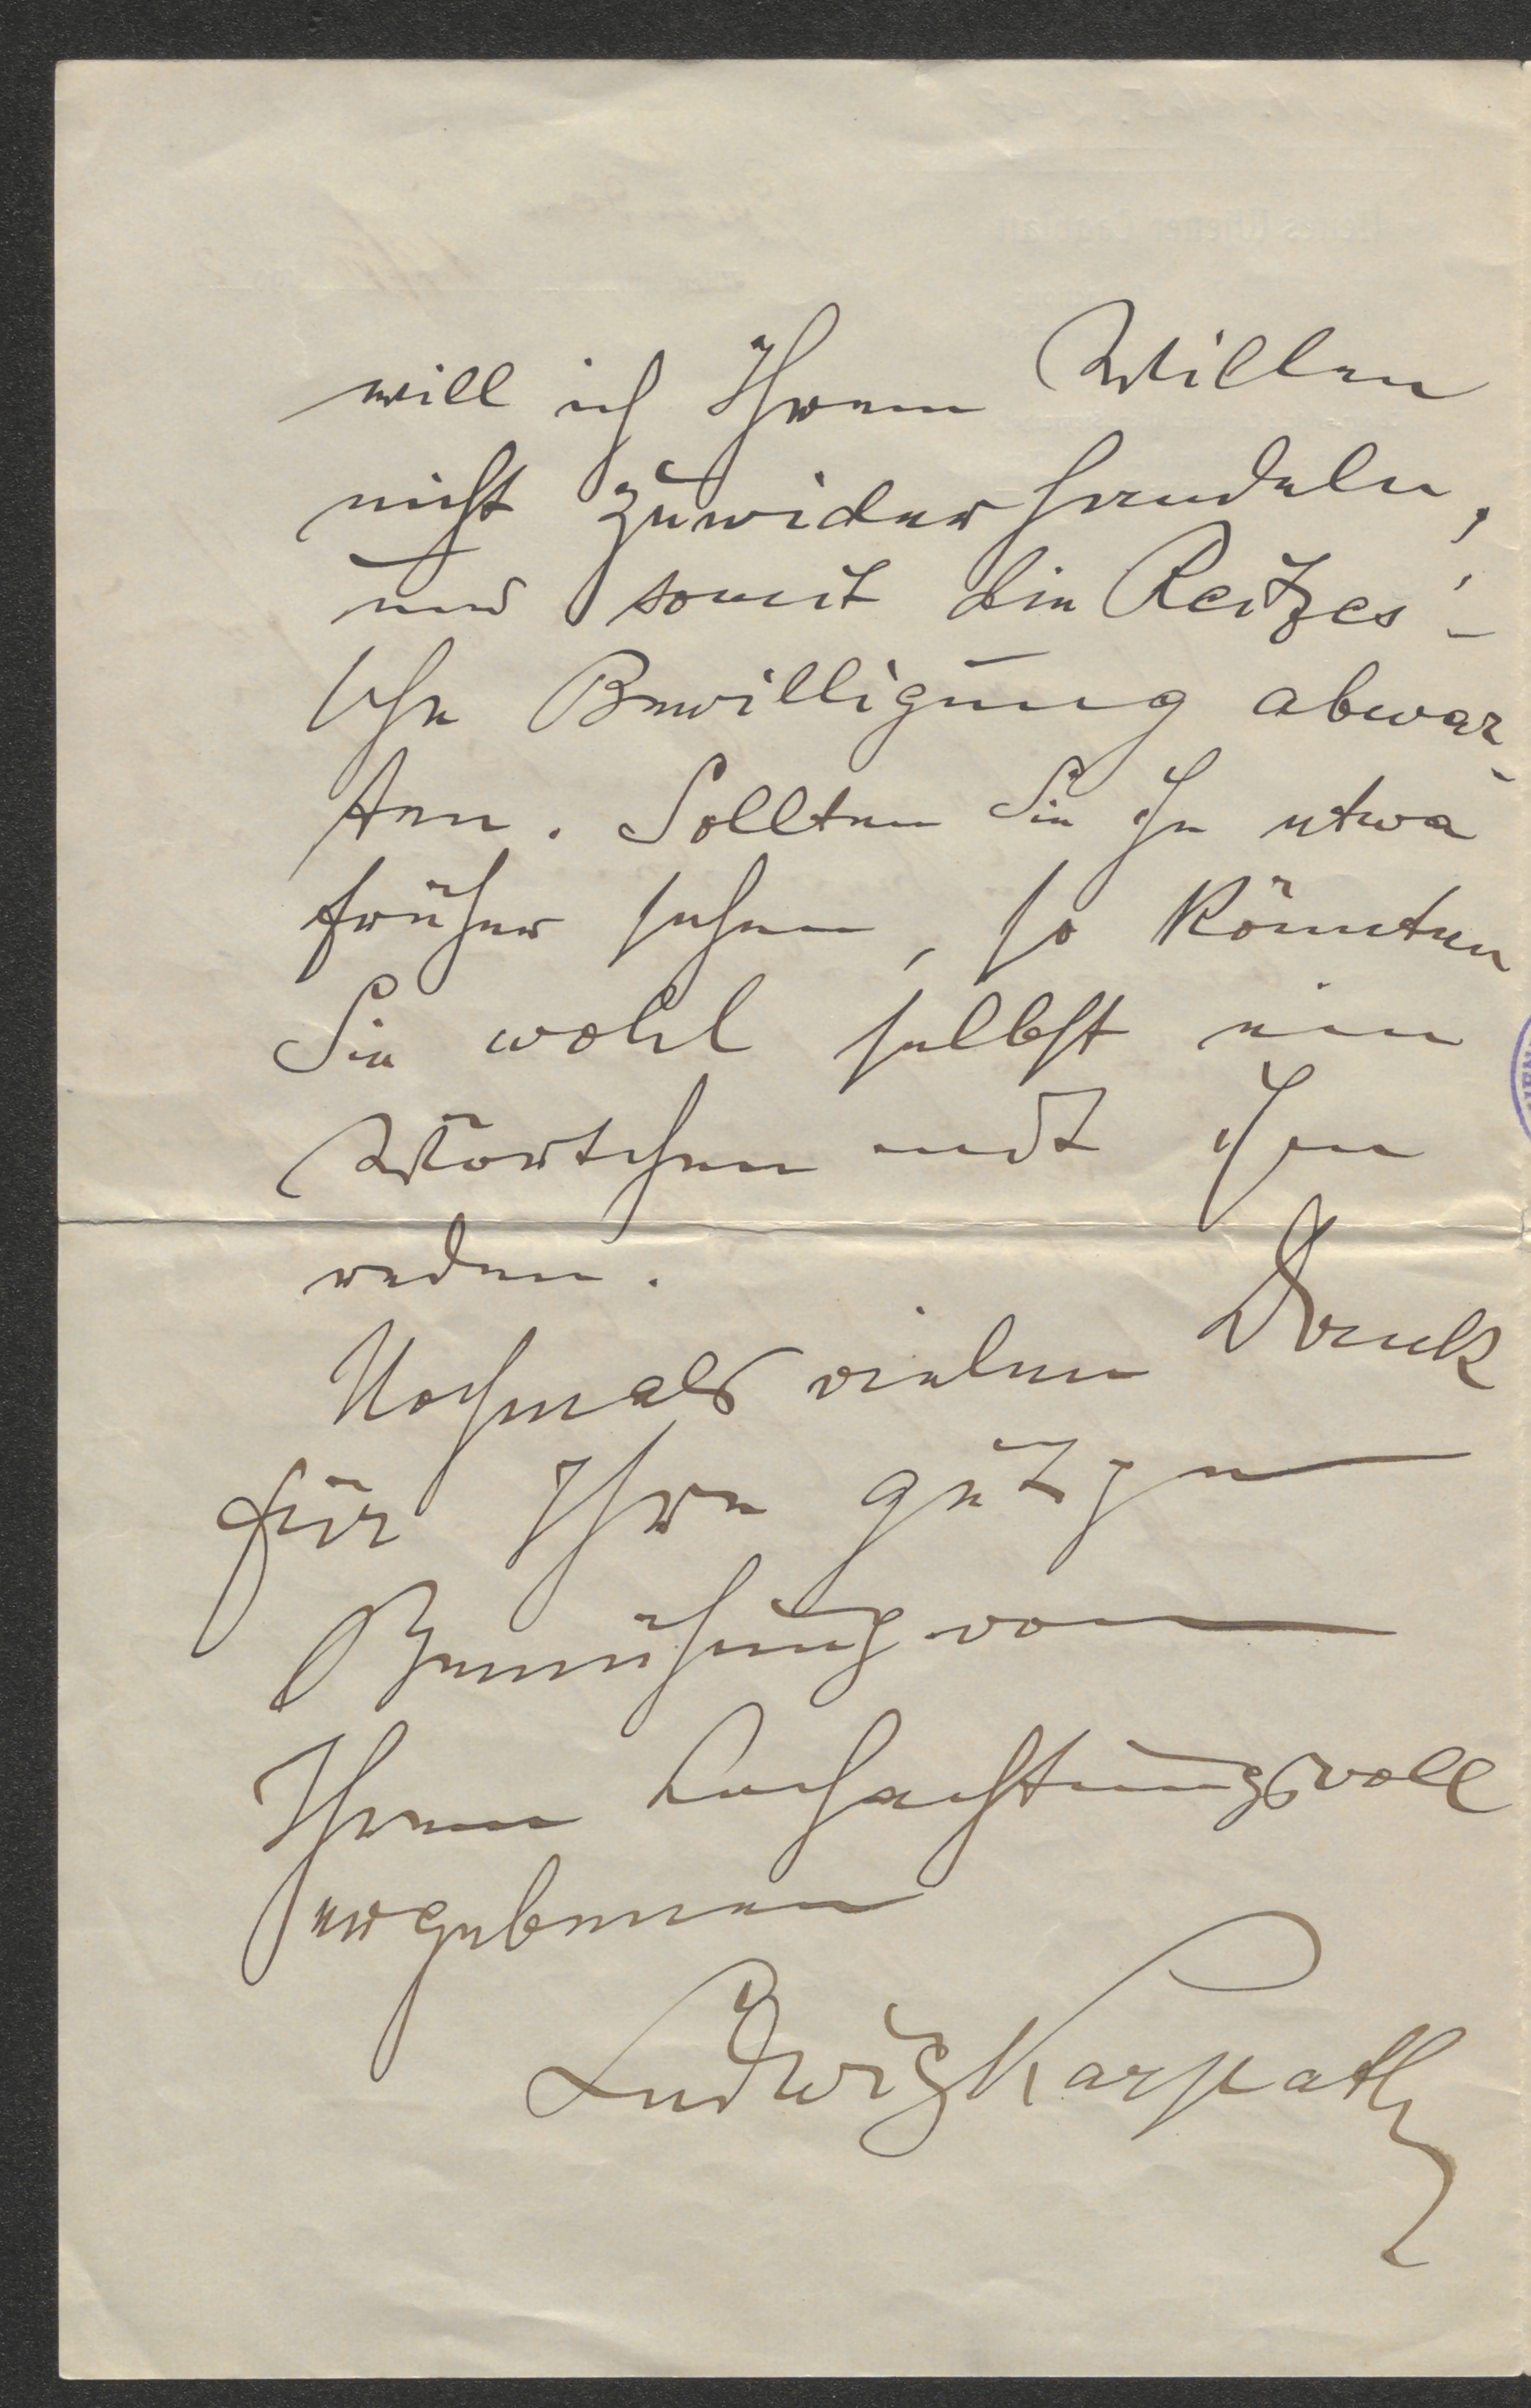 will ich Ihrem Willen
nicht zuwiderhandeln,
und somit die Reitzes'-
sche Bewilligung abwar-
ten. Sollten Sie ihn etwa
früher sehen, so könnten
Sie wohl selbst ein
Wörtchen mit ihm
reden.
Nochmals vielen Dank
für Ihre
Bemühung von
Ihrem hochachtungsvoll
ergebenen
Ludwig Karpath